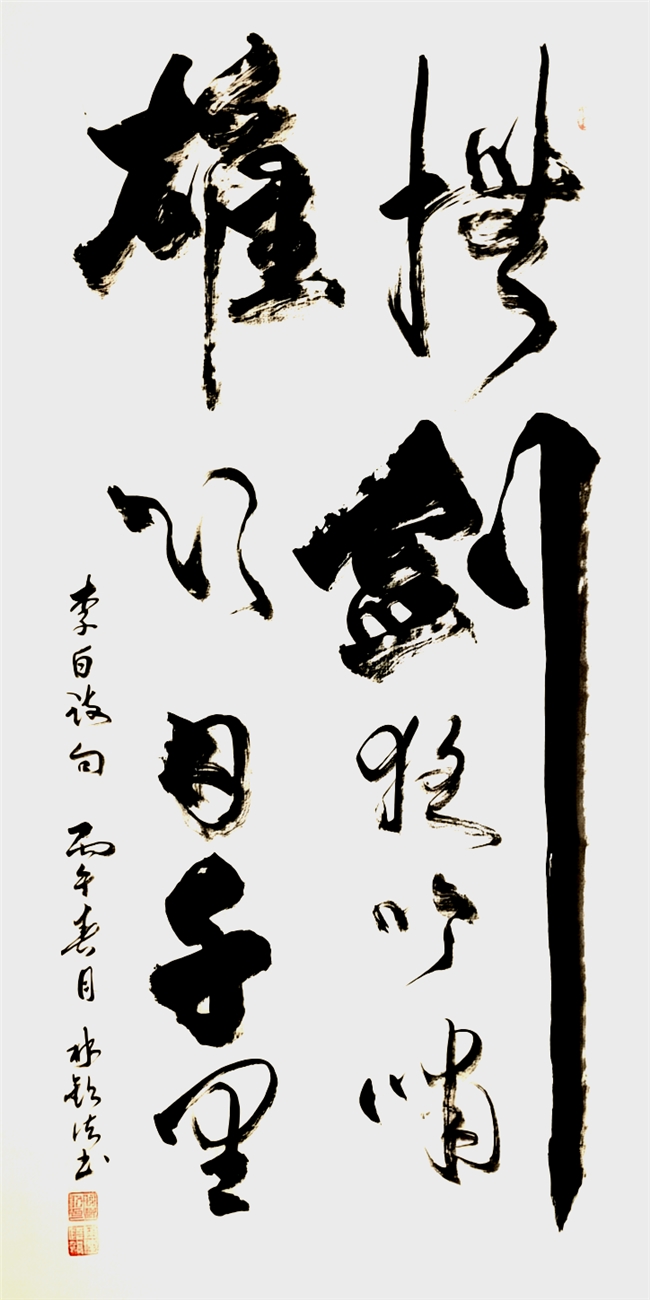 撫劍夜吟嘯
雄心日千里
李白诗句 丙午春月 林
书